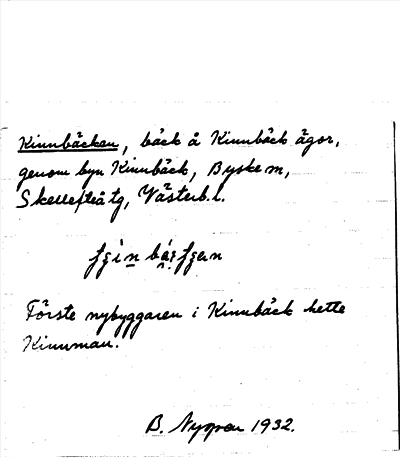 Kinnbäcken, bäck å Kinnbäck ägor,
genom byn Kinnbäck, Byske m,
Skellefteåtg, Västerb.l.
Förste nybyggaren i Kinnbäck hette
Kinnman.
B. 1932.